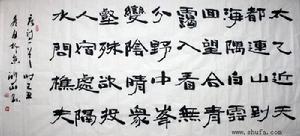 太乙近天
都連山到
海隅白雲
回望合青
靄入看無
分野中峰
變陰晴衆
壑殊欲投
人宿處隔
水問樵夫
www.shufa.com